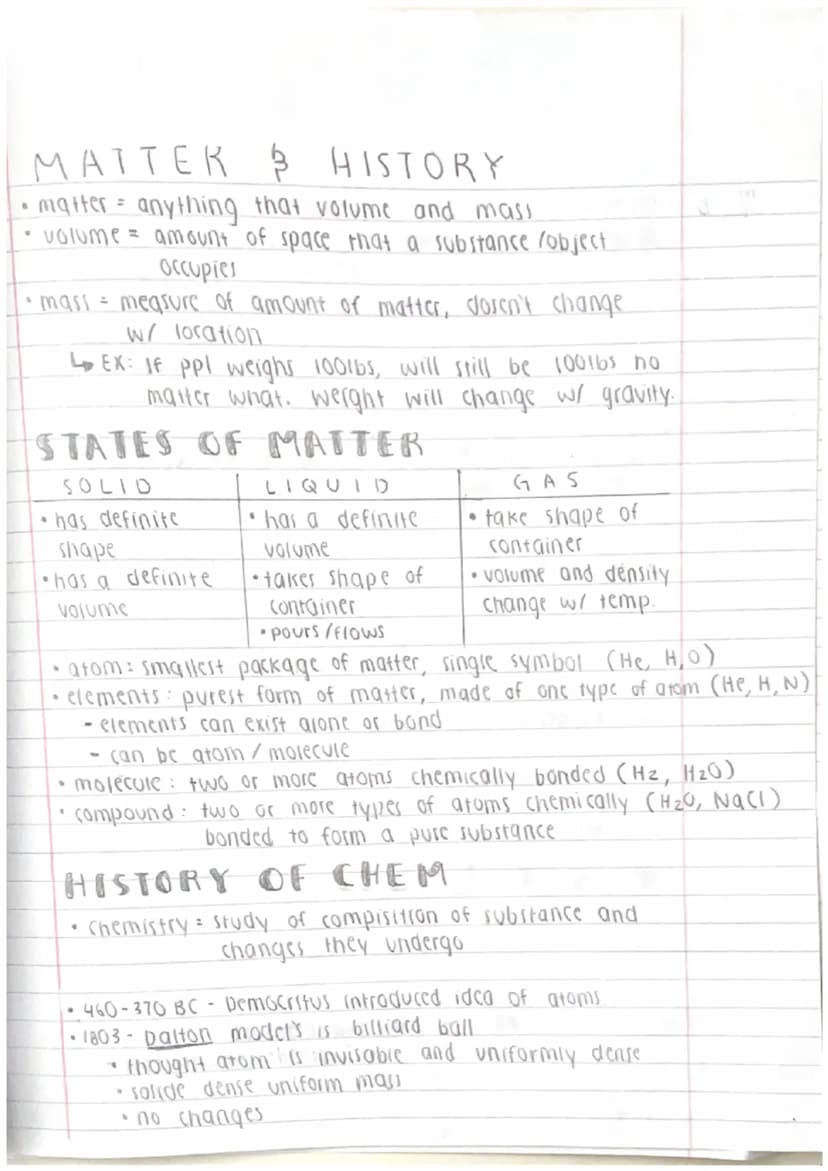 MATTER & HISTORY
• matter = anything that volume and mass
• volume = amount of space that a substance/object
occupies
• mass = measure of amount of matter, doesn't change
w/ location
↳ EX: If ppl weighs 100lbs, will still be 100lbs no
matter what. Weight will change w/ gravity.
STATES OF MATTER
SOLID LIQUID GAS
• has definite • has a definite • take shape of
shape volume container
• has a definite • takes shape of • volume and density
volume container change w/ temp.
• pours/flows
• atom: smallest package of matter, single symbol (He, H, O)
• elements: purest form of matter, made of one type of atom (He, H, N)
- elements can exist alone or bond
- can be atom/molecule
• molecule: two or more atoms chemically bonded (H2, H2O)
• compound: two or more types of atoms chemically (H2O, NaCl)
bonded to form a pure substance
HISTORY OF CHEM
• chemistry = study of compisition of substance and
changes they undergo
• 460-370 BC - Democritus introduced idea of atoms
• 1803 - Dalton model's is billiard ball
• thought atom is invisable and uniformly dense
• solide dense uniform mass
• no changes